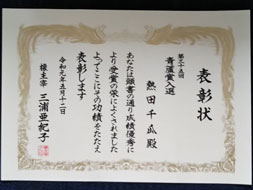 表彰状
第三十五回
青蓮賞入選
熱田千瓜殿
あなたは頭書の通り成績優秀に
より受賞の栄によくされました
よってここにその功績をたたえ
表彰します
令和元年五月十二日
槐主宰 三浦亜杞子